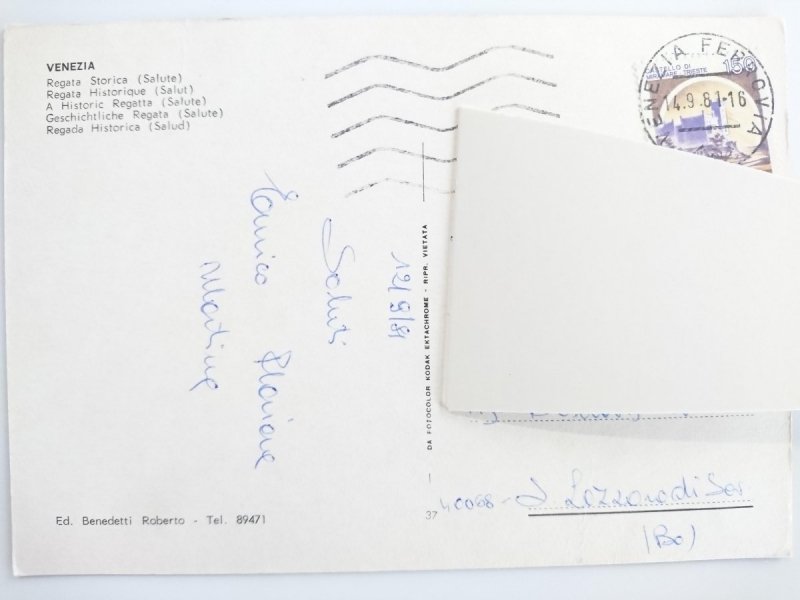 VENEZIA
Regata Storica (Salute)
Regata Historique (Salut)
A Historic Regatta (Salute)
Geschichtliche Regata (Salute)
Regada Historica (Salud)
CASTELLO DI
MIRAMARE TRIESTE
150
VENEZIA FERROVIA
14.9.81-16
12/9/81
Saluti
Enrico Floriana
Martina
DA FOTOCOLOR KODAK EKTACHROME - RIPR. VIETATA
37
40068 - S. Lazzaro di Sav.
(Bo)
Ed. Benedetti Roberto - Tel. 89471